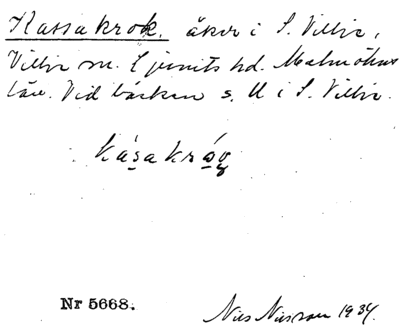 Kassakrok, åker i S. Villie,
Villie sn. Ljunits hd. Malmöhus
län. Vid bäcken s. U i S. Villie.
kásakråg
Nr 5668.
Nils Nilsson 1934.